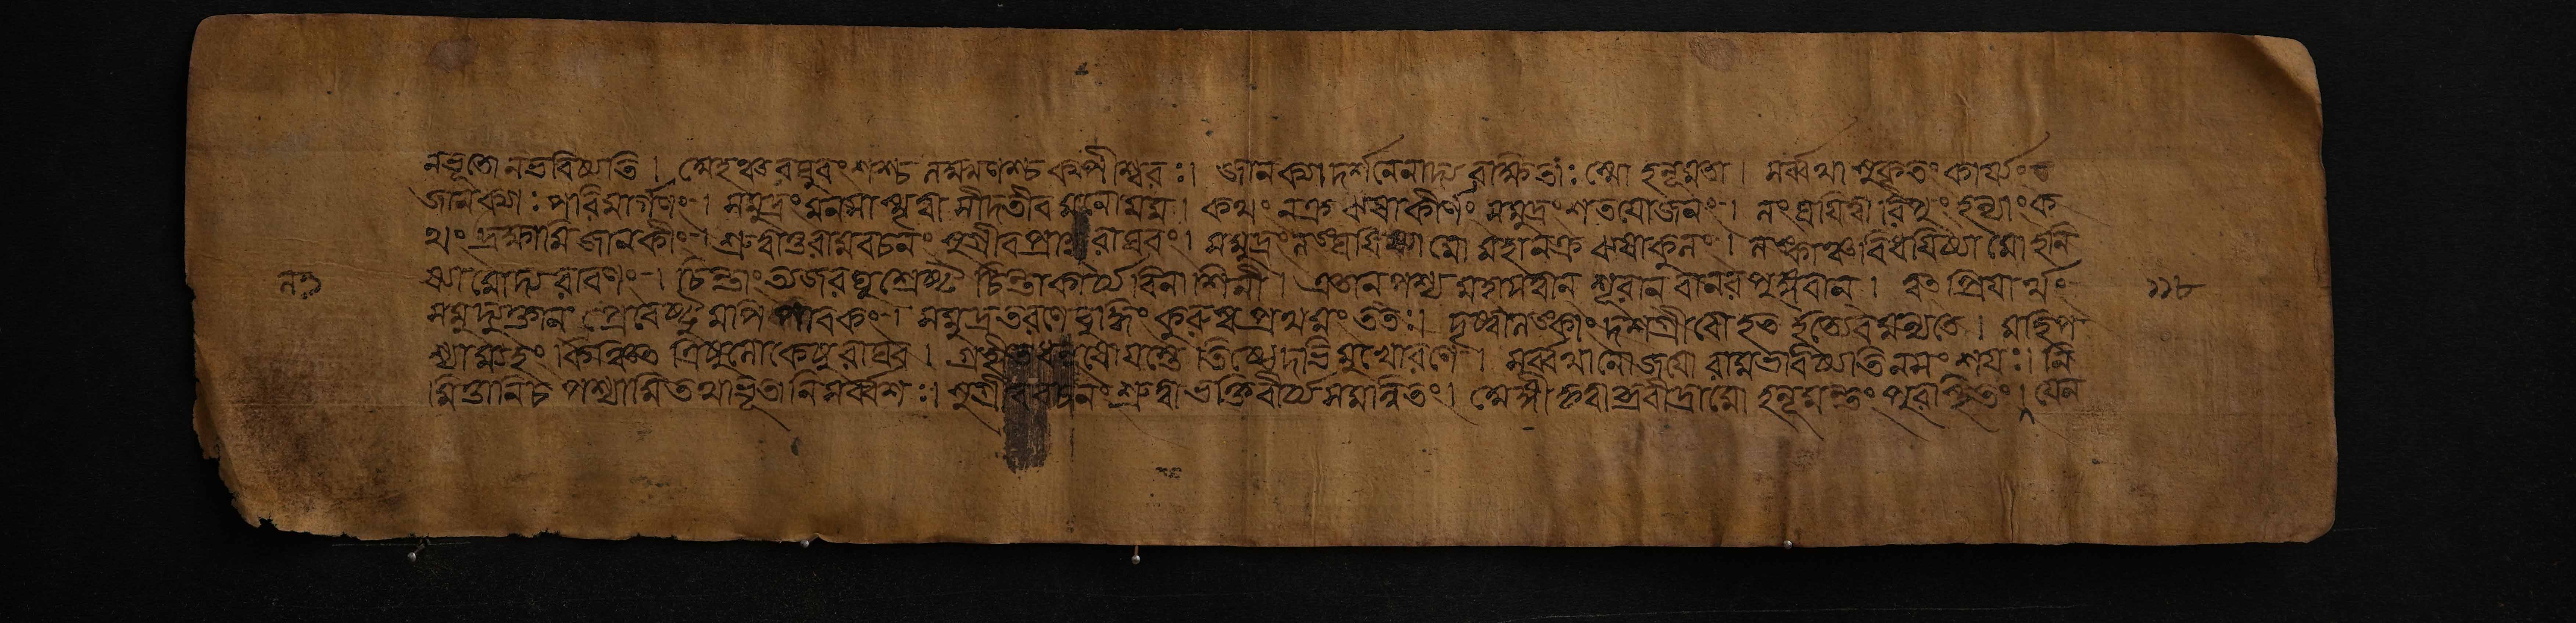 নভূতো নভবিষ্যতি । স্মেহঞ্চ রঘুবংশশ্চ লক্ষ্মণশ্চ কপীশ্বরঃ । জানক্যা দর্শনেনাদ্য রক্ষিতাঃ স্মো হনূমতা । সর্ব্বথা সুকৃতং কার্য্যং
জানক্যাঃ পরিমার্গণং । সমুদ্রং মনসা স্মৃত্বা সীদতীব মনো মম । কথং নক্র ঝষাকীর্ণং সমুদ্রং শতযোজনং । লংঘয়িত্বা রিপুং হত্বা ক
থং দ্রক্ষামি জানকীং । শ্রুত্বা তু রামবচনং সুগ্রীব প্রাহ রাঘবং । সমুদ্রং লঙ্ঘয়িষ্যামো মহানক্র ঝষাকুলং । লঙ্কাঞ্চ বিধমিষ্যামো হনি
ষ্যামোদ্য রাবণং । চিন্তাং ত্যজ রঘুশ্রেষ্ঠ চিন্তা কার্য্য বিনাশিনী । এতান পশ্য মহাসত্বান শূরান বানরপুঙ্গবান । ত্বৎ প্রিয়ার্থং
সমুদ্যুক্তান প্রবেষ্টুমপি পাবকং । সমুদ্রতরণে বুদ্ধিং কুরুষ্ব প্রথমং ততঃ । দৃষ্ট্বা লঙ্কাং দশগ্রীবো হত ইত্যেব মন্যতে । নহি প
শ্যাম্যহং কঞ্চিৎ ত্রিষু লোকেষু রাঘব । গৃহীতধনুষো যস্তে তিষ্ঠেদভিমুখো রণে । সর্ব্বথা নো জয়ো রাম ভবিষ্যতি ন সংশয়ঃ । নি
মিত্তানি চ পশ্যামি তথা ভূতানি সর্ব্বশঃ । সুগ্রীব বচনং শ্রুত্বা ভক্তি বীর্য্য সমন্বিতং । অঙ্গীকৃত্যাব্রবীদ্রামো হনূমন্তং পুরঃস্থিতং । যেন
লঙ
১১৮